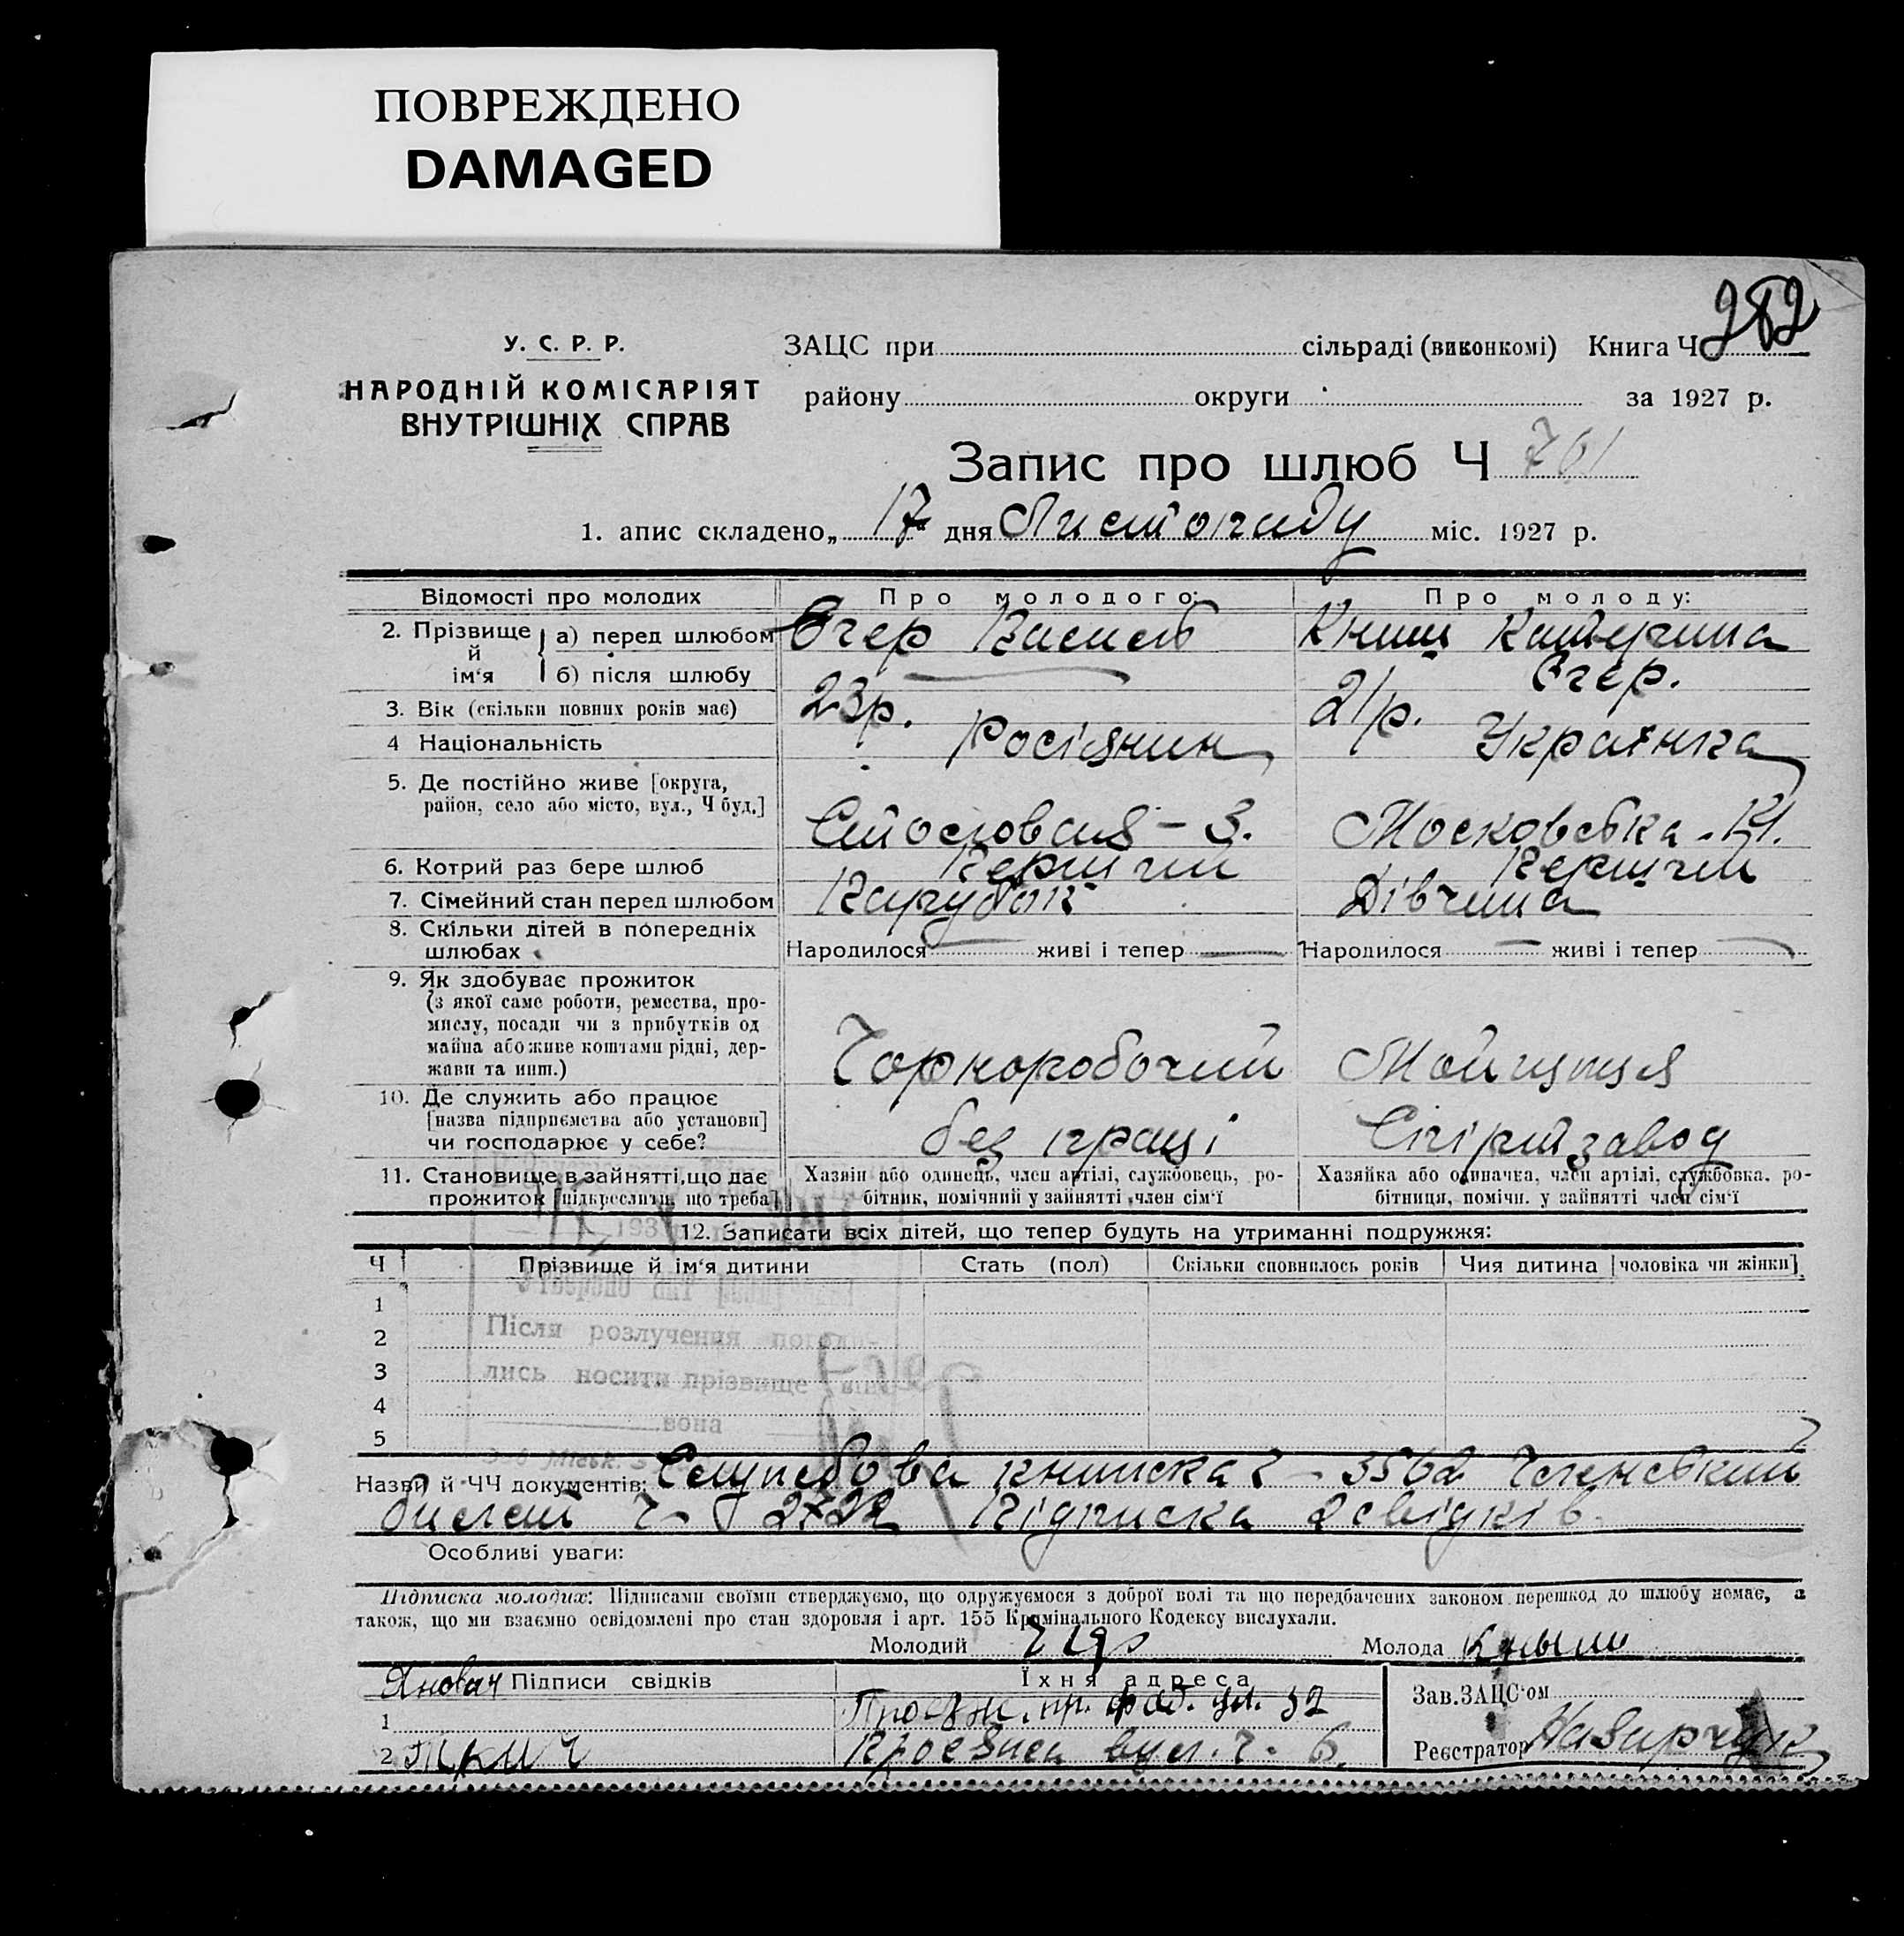 ПОВРЕЖДЕНО
DAMAGED
У. С. Р. Р.
НАРОДНІЙ КОМІСАРІЯТ
ВНУТРІШНІХ СПРАВ
ЗАЦС при сільраді (виконкомі) Книга Ч 282
району округи за 1927 р.
Запис про шлюб Ч 761
1. апис складено„ 17 дня Листопаду міс. 1927 р.
Відомості про молодих Про молодого: Про молоду:
2. Прізвище й ім'я а) перед шлюбом Єгер Книш Катерина
б) після шлюбу Єгер.
3. Вік (скільки повних років має) 23р. 21р.
4 Національність Росіянин Українка
5. Де постійно живе [округа,
район, село або місто, вул., Ч буд.] – 3. Московська -
6. Котрий раз бере шлюб Перший Перший
7. Сімейний стан перед шлюбом Парубок Дівчина
8. Скільки дітей в попередніх
шлюбах Народилося живі і тепер Народилося живі і тепер
9. Як здобуває прожиток
(з якої саме роботи, ремества, про-
мислу, посади чи з прибутків од
майна або живе коштами рідні, дер-
жави та инш.) Чорноробочий Мойщиця
10. Де служить або працює
[назва підприємства або установи]
чи господарює у себе? без праці Спіртзавод
11. Становище в зайнятті, що дає
прожиток [підкреслити що треба]
Хазяін або одинець, член артілі, службовець, ро-
бітник, помічний у зайнятті член сім'ї
Хазяйка або одиначка, член артілі, службовка, ро-
бітниця, помічн. у зайнятті член сім'ї
12. Записати всіх дітей, що тепер будуть на утриманні подружжя:
Ч Прізвище й ім'я дитини Стать (пол) Скільки сповнилось років Чия дитина [чоловіка чи жінки]
1
2
3
4
5
Після розлучення погоди-
лись носити прізвище він
вона
Назви й ЧЧ документів: книжка Ч – 3562 Членський
билет Ч- 2722 Підписка 2 свідків.
Особливі уваги:
Підписка молодих: Підписами своїми стверджуємо, що одружуємося з доброї волі та що передбачених законом перешкод до шлюбу немає, а
також, що ми взаємно освідомлені про стан здоровля і арт. 155 Кримінального Кодексу вислухали.
Молодий Молода Кныш
Янович Підписи свідків Їхня адреса Зав. ЗАЦС'ом
1 32
2 вул. Ч. 6. Реєстратор